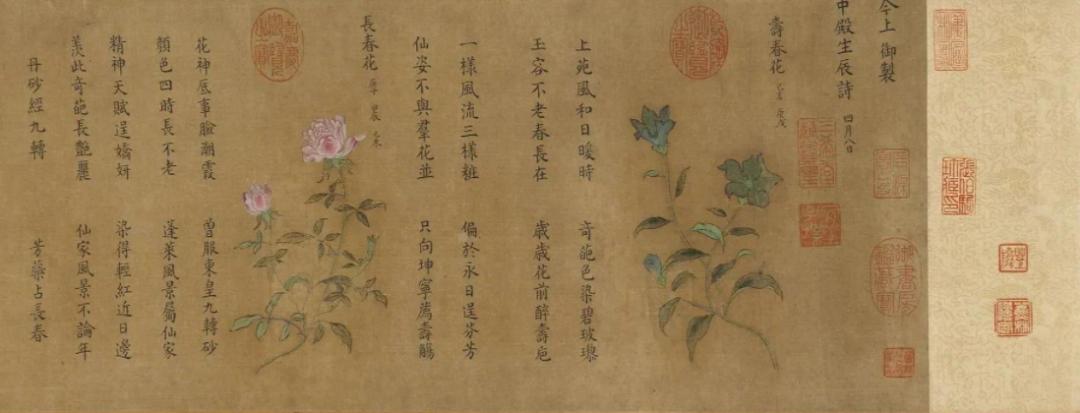 今上御製
中殿生辰詩 四月八日
壽春花
上苑風和日暖時 奇葩色染碧玻瓈
玉容不老春長在 歲歲花前醉壽巵
一樣風流三樣粧 偏於永日逞芬芳
仙姿不與羣花並 只向坤寧薦壽觴
長春花
花神底事臉潮霞 曾服東皇九轉砂
顏色四時長不老 蓬萊風景屬仙家
精神天賦逞嬌妍 染得輕紅近日邊
羨此奇葩長艷麗 仙家風景不論年
丹砂經九轉 芳蘂占長春